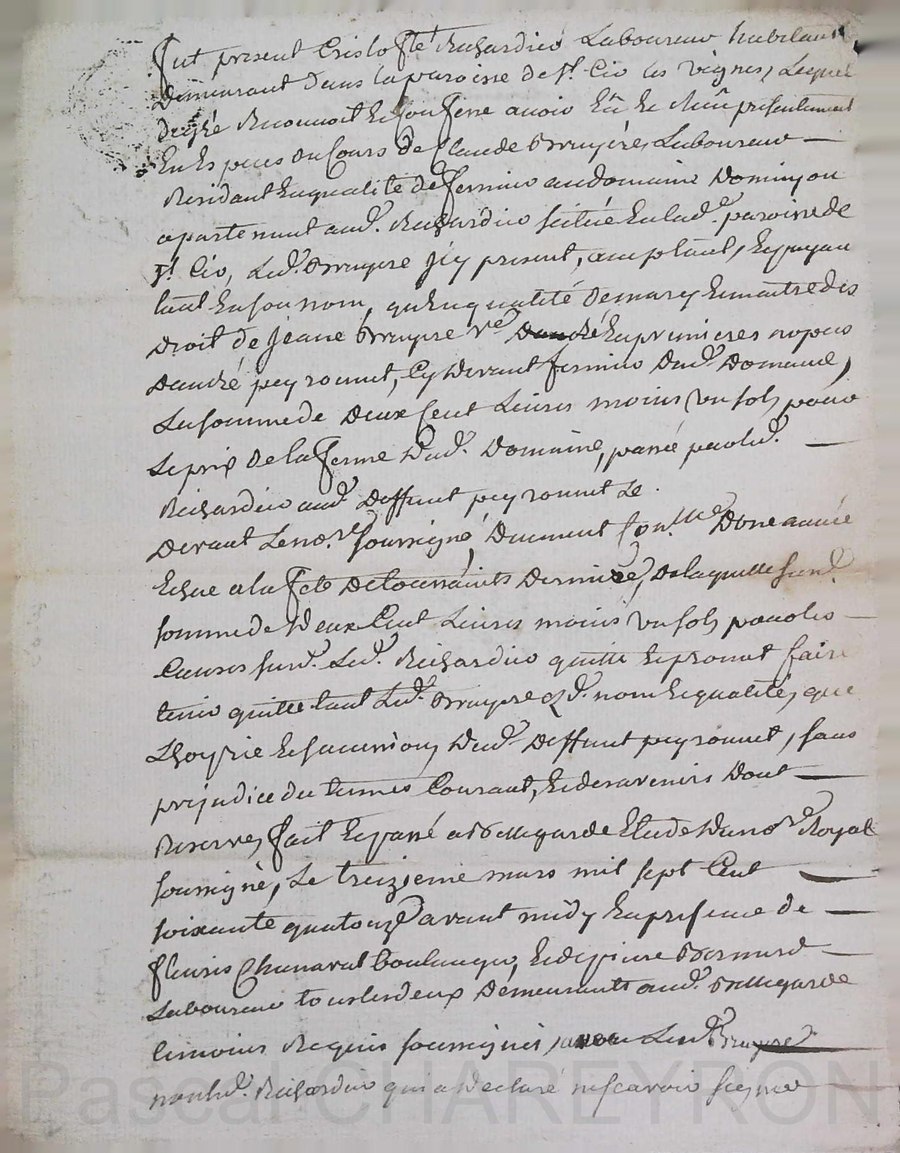 fut present Cristofle Richardier Laboureur habitant
demeurant dans la paroisse de st. Cir les vignes, Lequel
de gré Reconnoit Et Confesse avoir Eû Et Reçû presentement
En Especes du Cours de Claude Bruyere, Laboureur
Residant En qualité de fermier au domaine Dominjon
apartenant aud. Richardier scitué En lad. paroisse de
st. Cir, Led. Bruyere icy present, acceptant, Et payant
tant En son nom, qu'En qualité de mary Et maitre des
droit de Jeane Bruyere ve. En premieres nopces
D'andré peyronnet, Cy devant fermier dud. Domaine,
La somme de deux Cent Livres moins un sols pour
Le prix de la ferme dud. Domaine, passé par led.
Richardier aud. deffunt peyronnet Le.
devant Le no.re soussigné, Duement Con.llé D'une année
Echue a la fete de toussaints derniere, De laquelle susd.
somme de deux Cent Livres moins un sols pour les
Causes susd. Led. Richardier quitte Et promet faire
tenir quitte tant Led. Bruyere esd. nom Et qualités, que
L'hoyrie Et succession dud. deffunt peyronnet, sans
prejudice du terme Courant, Et des avenirs Dont
Reserve, fait Et passé a Bellegarde Etude du no.re Royal
soussigné, Le treizieme mars mil sept Cent
soixante quatorze avant midy En presence de
fleuris Chanavat boulanger, Et de pierre Bernard
Laboureur tous les deux Demeurants aud. Bellegarde
temoins Requis soussignés, avec Led. Bruyere
non led. Richardier qui a declaré ne scavoir signer
Pascal CHAREYRON